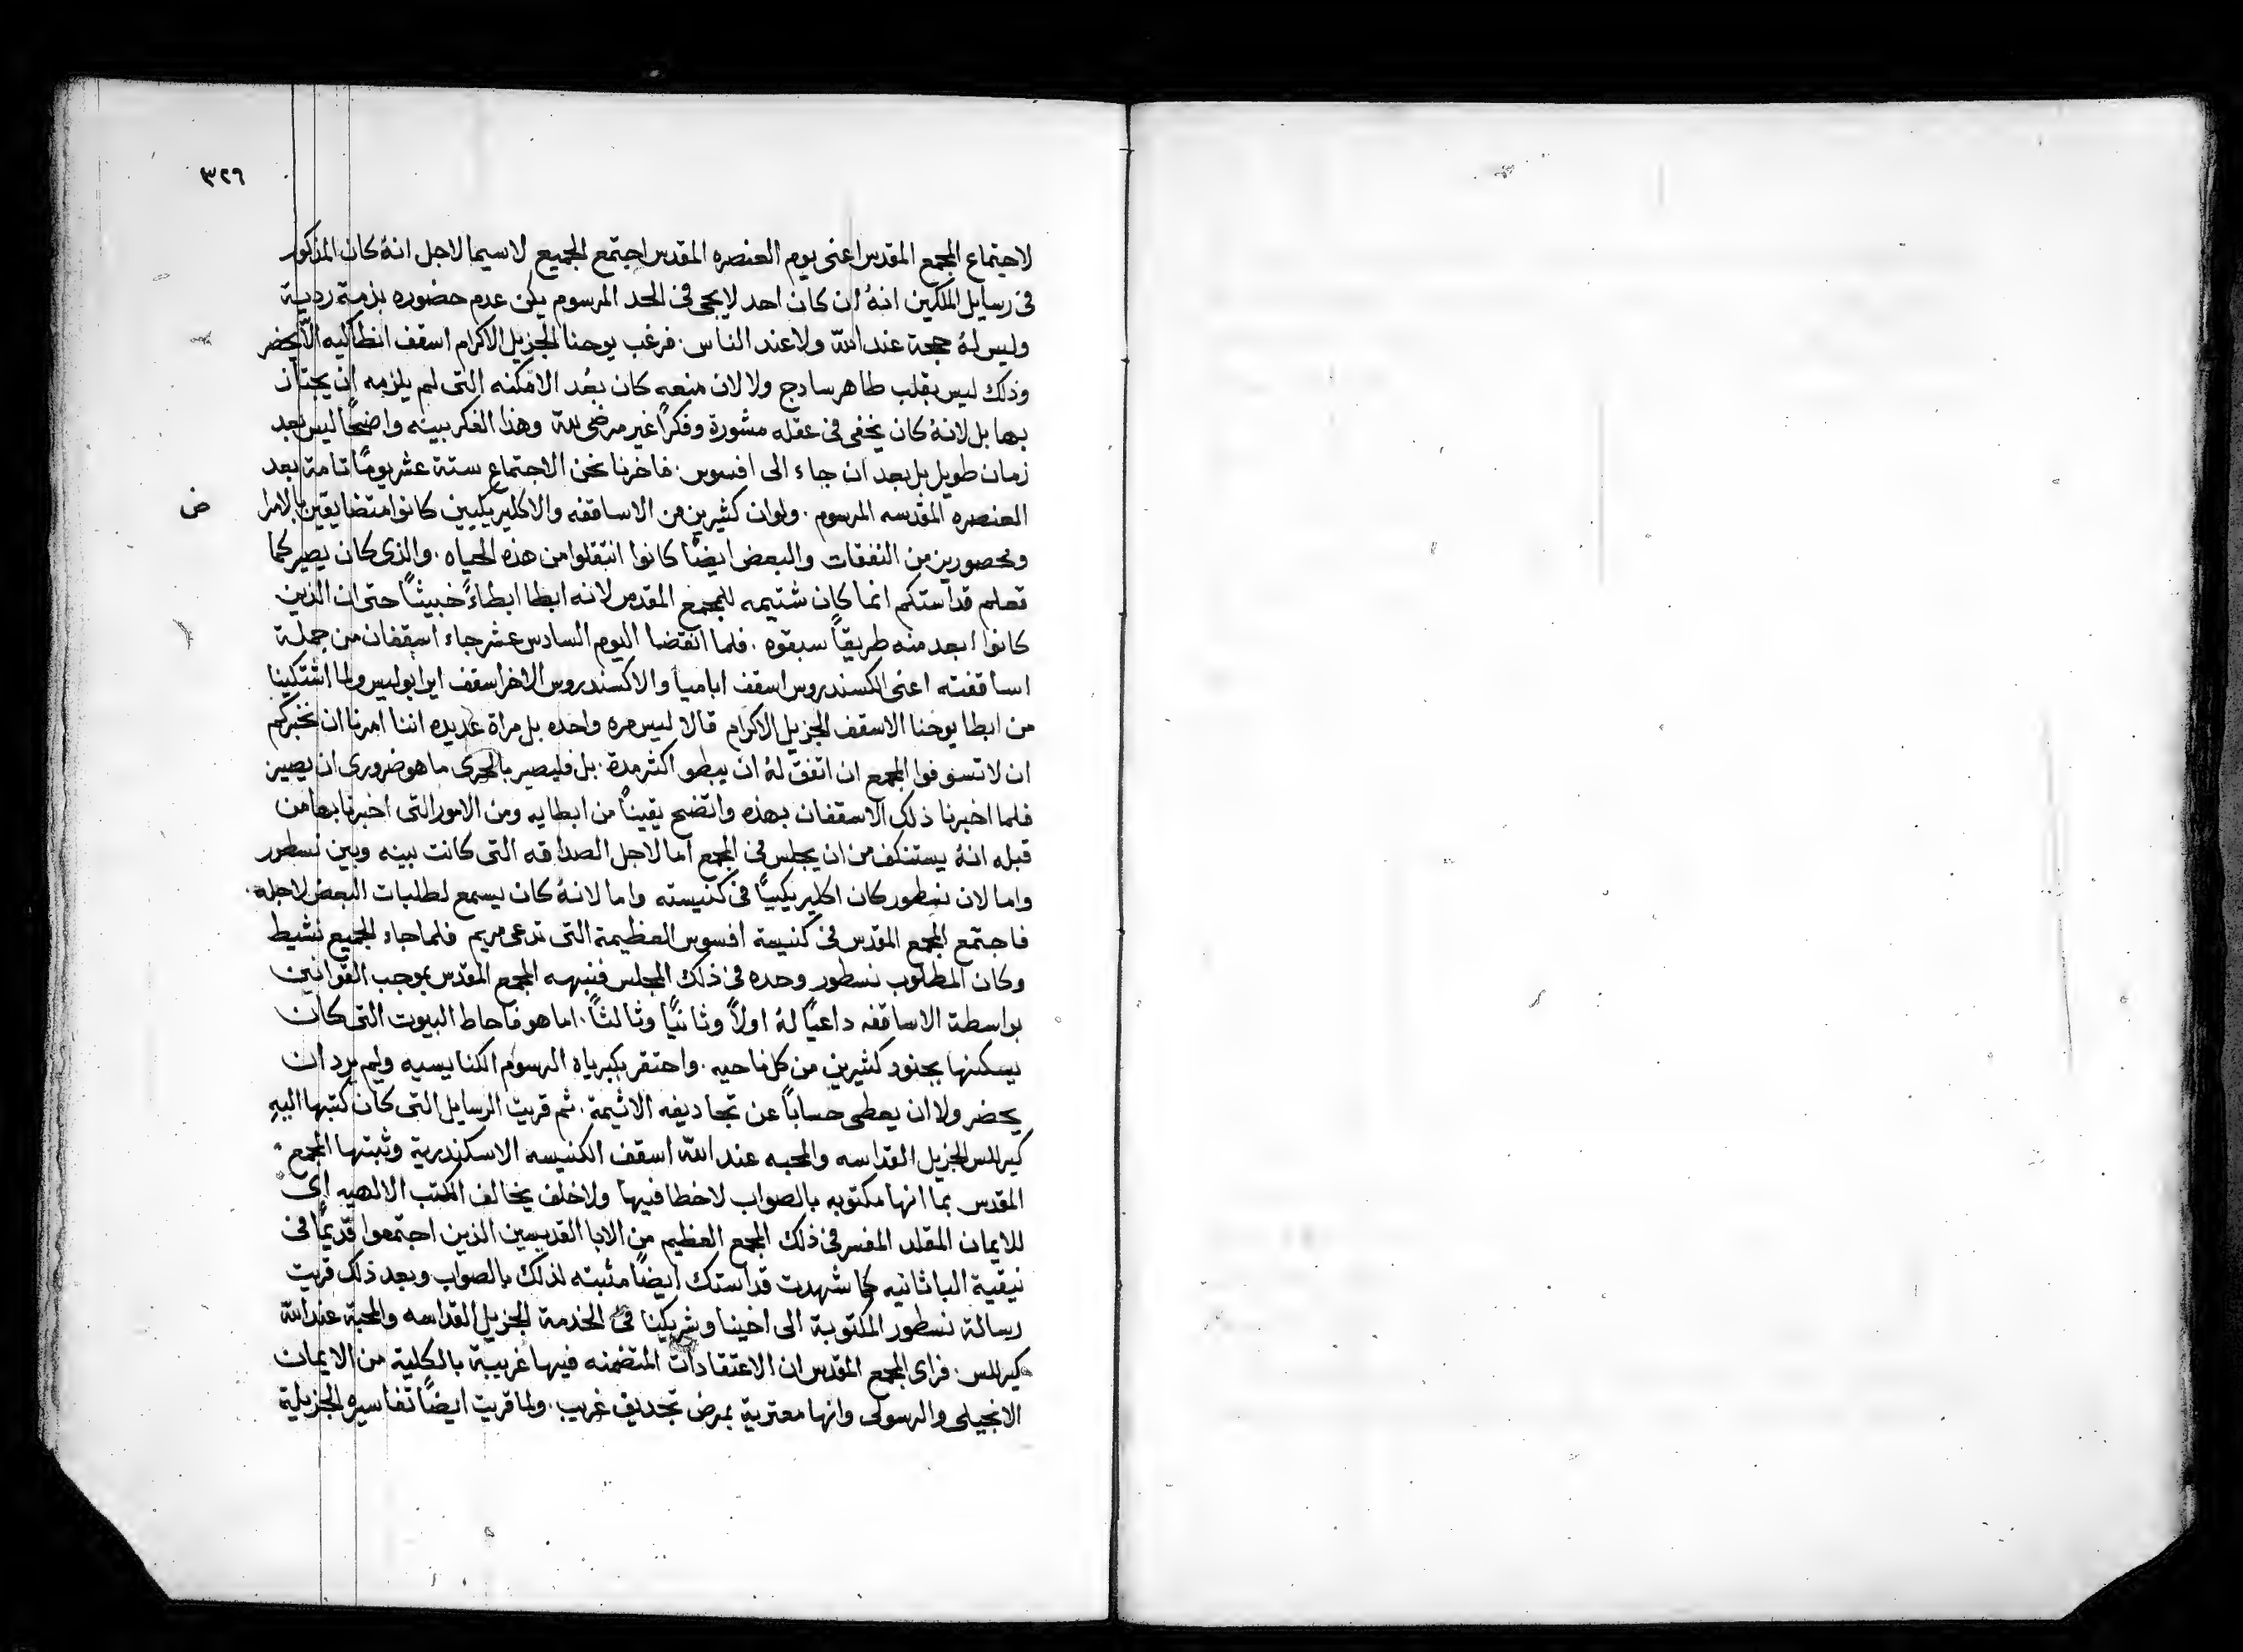 ٣٢٦
لاجتماع المجمع المقدس اعنى يوم العنصره المقدس اجتمع الجميع لاسيما لاجل انهُ كان المذكور
فى رسايل الملكين انهُ ان كان احد لا يجى فى الحد المرسوم يكن عدم حضوره بذمة ردية
وليس لهُ حجة عند الله ولا عند الناس. فرغب يوحنا الجزيل الاكرام اسقف انطاكيه الّا يحضر
وذلك ليس بقلب طاهر سادج ولا لان منعه كان بُعد الامكنه التى لم يلزمه ان يجتاز
بها بل لانهُ كان يخفى فى عقله مشورة وفكراً غير مرضى لله وهذا الفكر بينه واضحاً ليس بعد
زمان طويل بل بعد ان جاء الى افسوس. فاخرنا نحن الاجتماع ستة عشر يوماً تامة بعد
العنصره المقدسه المرسوم. ولو ان كثيرين من الاساقفه والاكليريكيين كانوا متضايقين بالامرا
ض
ومحصورين من النفقات والبعض ايضاً كانوا انتقلوا من هذه الحياه. والذى كان يصير كما
تعلم قداستكم انما كان شتيمه للمجمع المقدس لانه ابطا ابطاءً خبيثاً حتى ان الذين
كانوا ابعد منه طريقاً سبقوه. فلما انقضا اليوم السادس عشر جاء اسقفان من جملة
اساقفته اعنى الكسندروس اسقف اباميا والاكسندروس الاخر اسقف ايرابوليس ولما اشتكينا
من ابطا يوحنا الاسقف الجزيل الاكرام قالا ليس مره واحده بل مراة عديده اننا امرنا ان نخبركم
ان لا تسوفوا المجمع ان اتفق لهُ ان يبطو اكثر مدة. بل فليصير بالحرى ما هو ضرورى ان يصير
فلما اخبرنا ذلك الاسقفان بهذه واتضح يقيناً من ابطايه ومن الامور التى اخبرنا بها من
قبله انهُ يستنكف من ان يجلس فى المجمع اما لاجل الصداقه التى كانت بينه وبين نسطور
واما لان نسطور كان اكليريكيياً فى كنيسته واما لانهُ كان يسمع لطلبات البعض لاجله.
فاجتمع المجمع المقدس فى كنيسة افسوس العظيمة التى تدعى مريم فلما جاء الجميع نشيط
وكان المطلوب نسطور وحده فى ذلك المجلس فنبهه المجمع المقدس بموجب القوانين
بواسطة الاساقفه داعياً لهُ اولاً وثانياً وثالثاً. اما هو فاحاط البيوت التى كان
يسكنها بجنود كثيرين من كل ناحيه. واحتقر بكبرياه الرسوم الكنايسيه ولم يرد ان
يحضر ولا ان يعطى حساباً عن تجاديفه الاثيمة. ثم قريت الرسايل التى كان كتبها اليهِ
كيرللس الجزيل القداسه والمحبه عند الله اسقف الكنيسه الاسكندرية وثبتها المجمع
المقدس بما انها مكتوبه بالصواب لا خطا فيها ولا خلف يخالف الكتب الالهيه اى
للايمان المقلد المفسر فى ذلك المجمع العظيم من الابا القديسين الذين اجتمعوا قديماً فى
نيقية الباثانيه كما شهدت قداستك ايضاً مثبته لذلك بالصواب وبعد ذلك قريت
رسالة نسطور المكتوبة الى اخينا وشريكنا فى الخدمة الجزيل القداسه والمحبة عند الله
كيرللس. فراى المجمع المقدس ان الاعتقادات المتضمنه فيها غريبة بالكلية من الايمان
الانجيلى والرسولى وانها معترية بمرض تجديف غريب. ولما قريت ايضاً تفاسيره الجزيلة